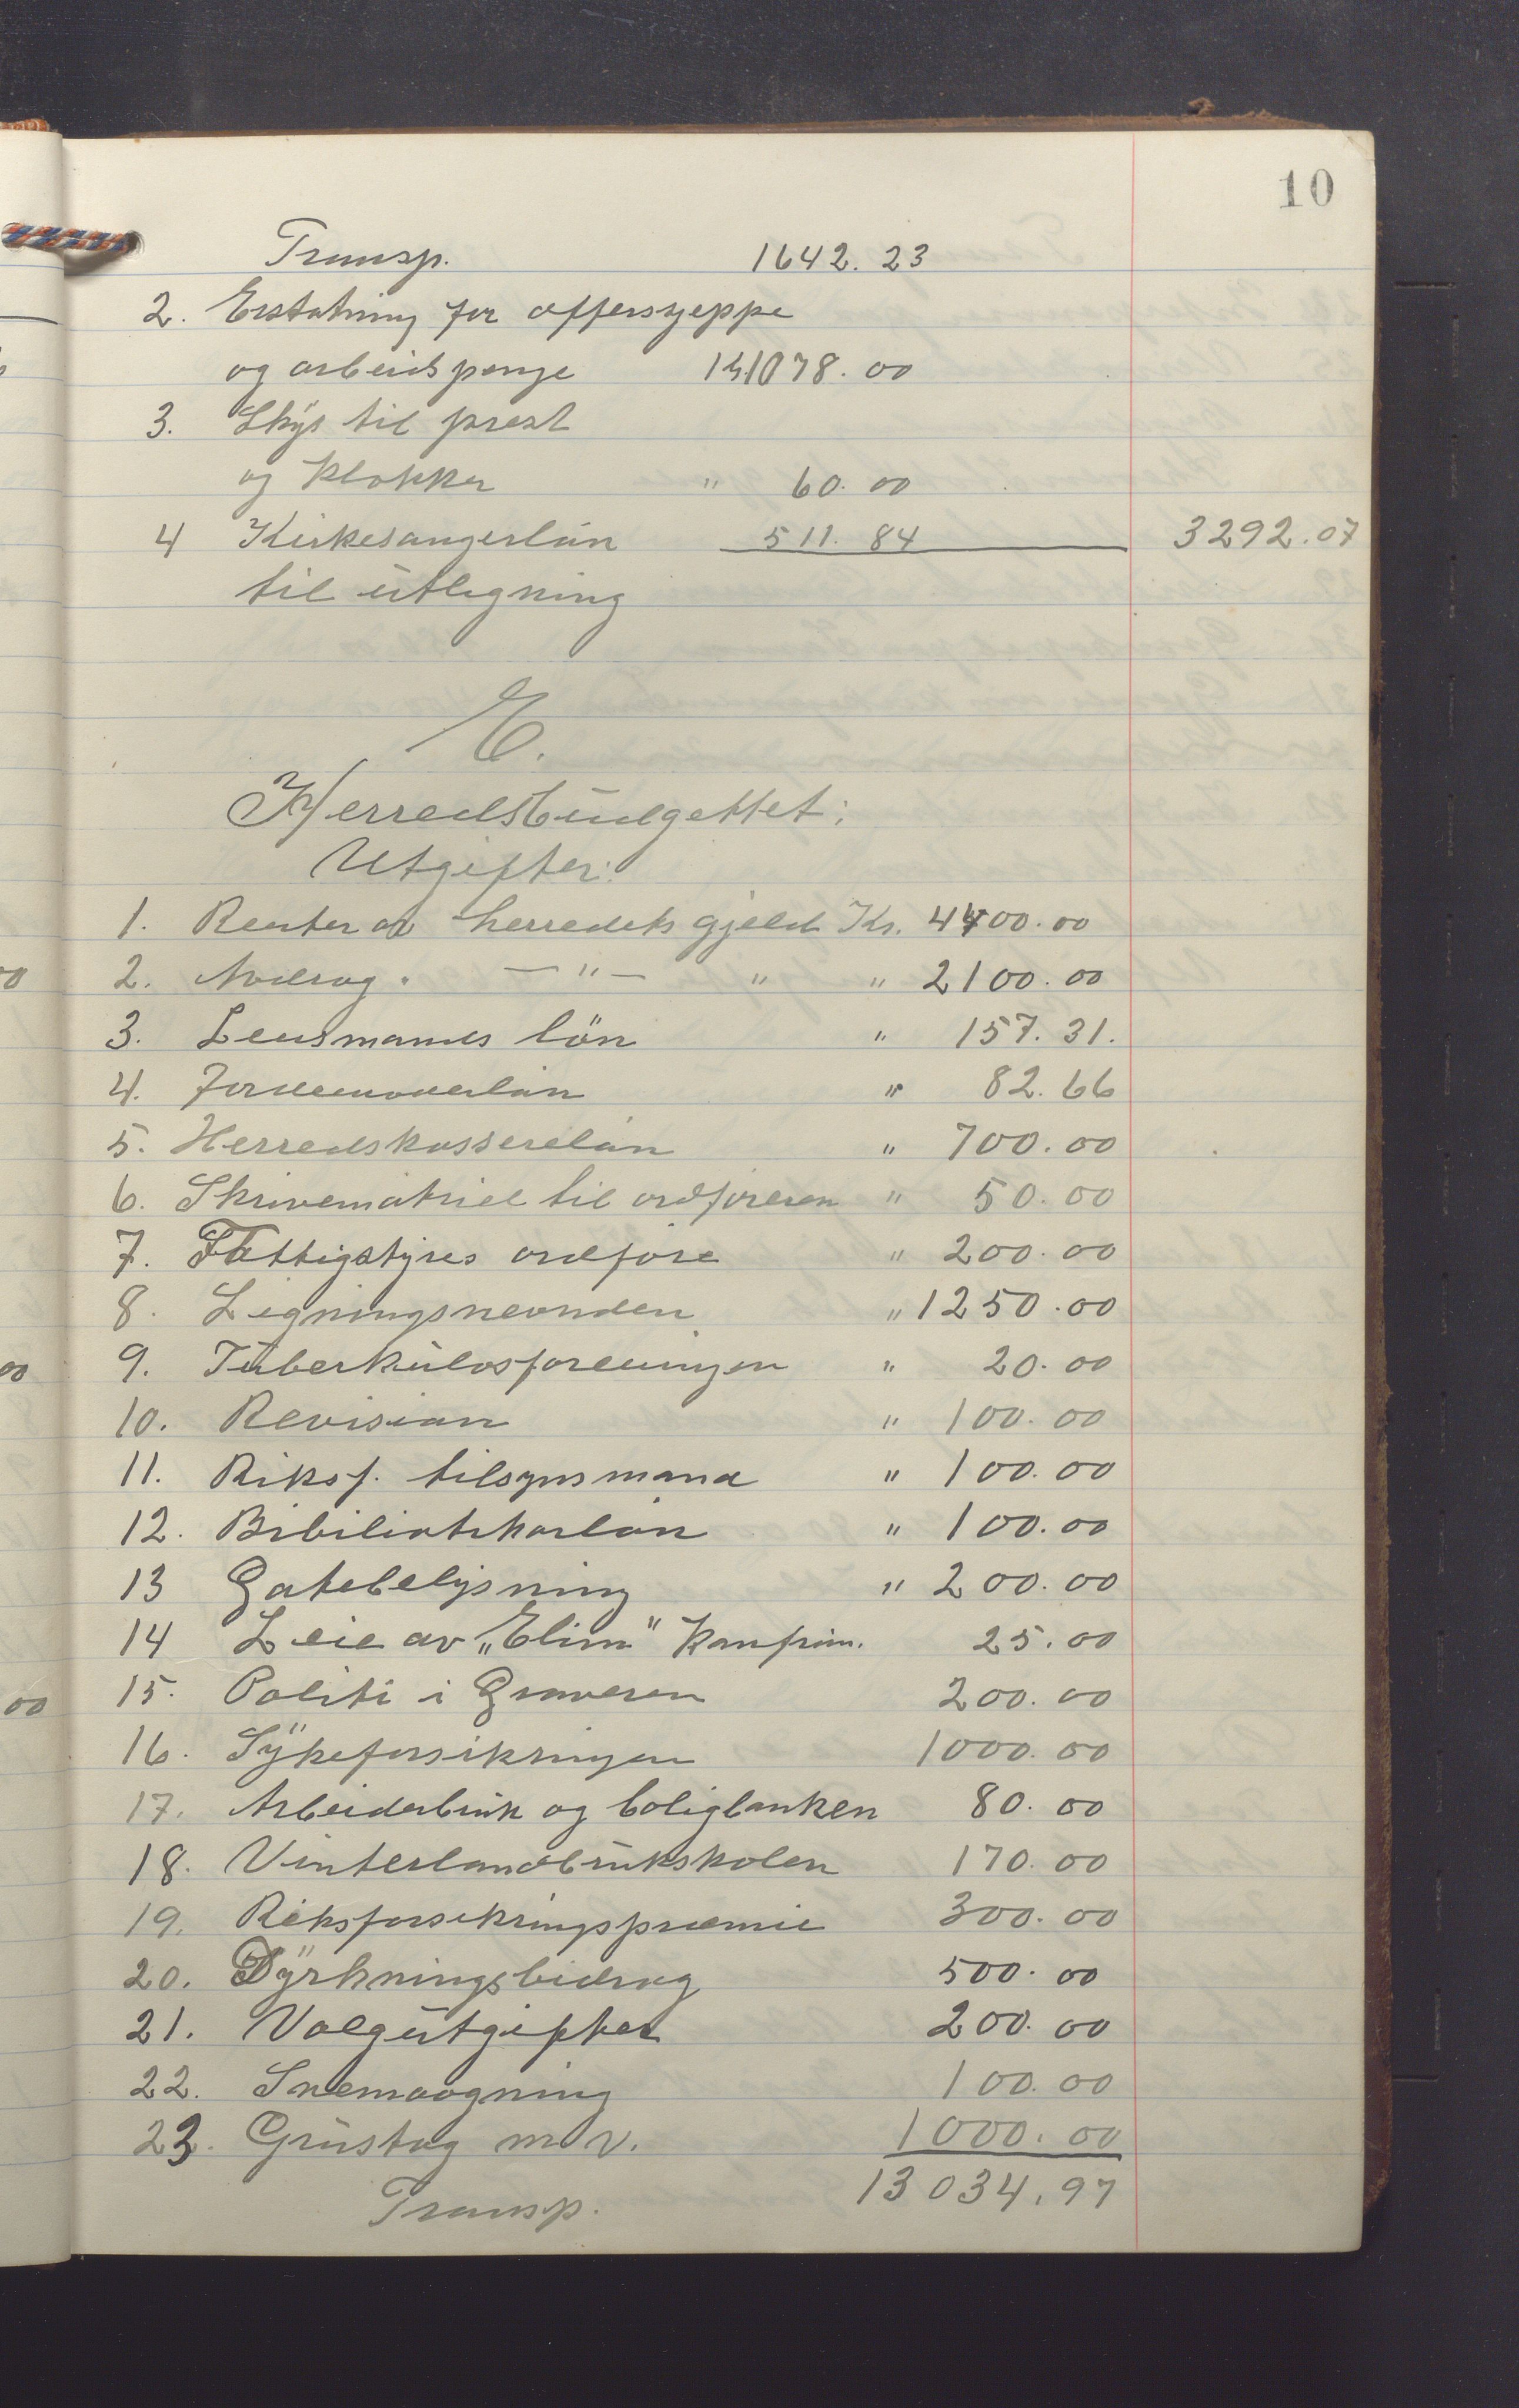 10
Transp. 1642.23
2. Erstatning for offerszeppe
og arbeidspenge 1078.00
3. Skÿs til prest
og klokker " 60.00
4 Kirkesangerlön 511.84 3292.07
til ütlegning
E.
Herredsbüdgettet:
Utgifter:
1. Renter av herredets gjeld Kr. 4400.00
2. Avdrag " —"— " " 2100.00
3. Lensmandes lön " 157.31.
4. Jordemoderlön " 82.66
5. Herredskasserelön " 700.00
6. Skrivematriel til ordföreren " 50.00
7. Fattigstÿres ordföre " 200.00
8. Ligningsnevnden " 1250.00
9. Tüberkülosforeningen " 20.00
10. Revision " 100.00
11. Riksf. tilsynsmand " 100.00
12. Bibiliotekarlön " 100.00
13 Gatebelÿsning " 200.00
14 Leie av „Elim" konfrim. 25.00
15. Politi i Graveren 200.00
16. Sÿkeforsikringen 1000.00
17. Arbeiderbrük og boligbanken 80.00
18. Vinterlandbrükskolen 170.00
19. Riksforsikringspræmie 300.00
20. Dÿrkningsbidrag 500.00
21. Valgütgifter 200.00
22. Snemaagning 100.00
23. Grüstag m.v. 1000.00
Transp. 13034.97
00
00
00